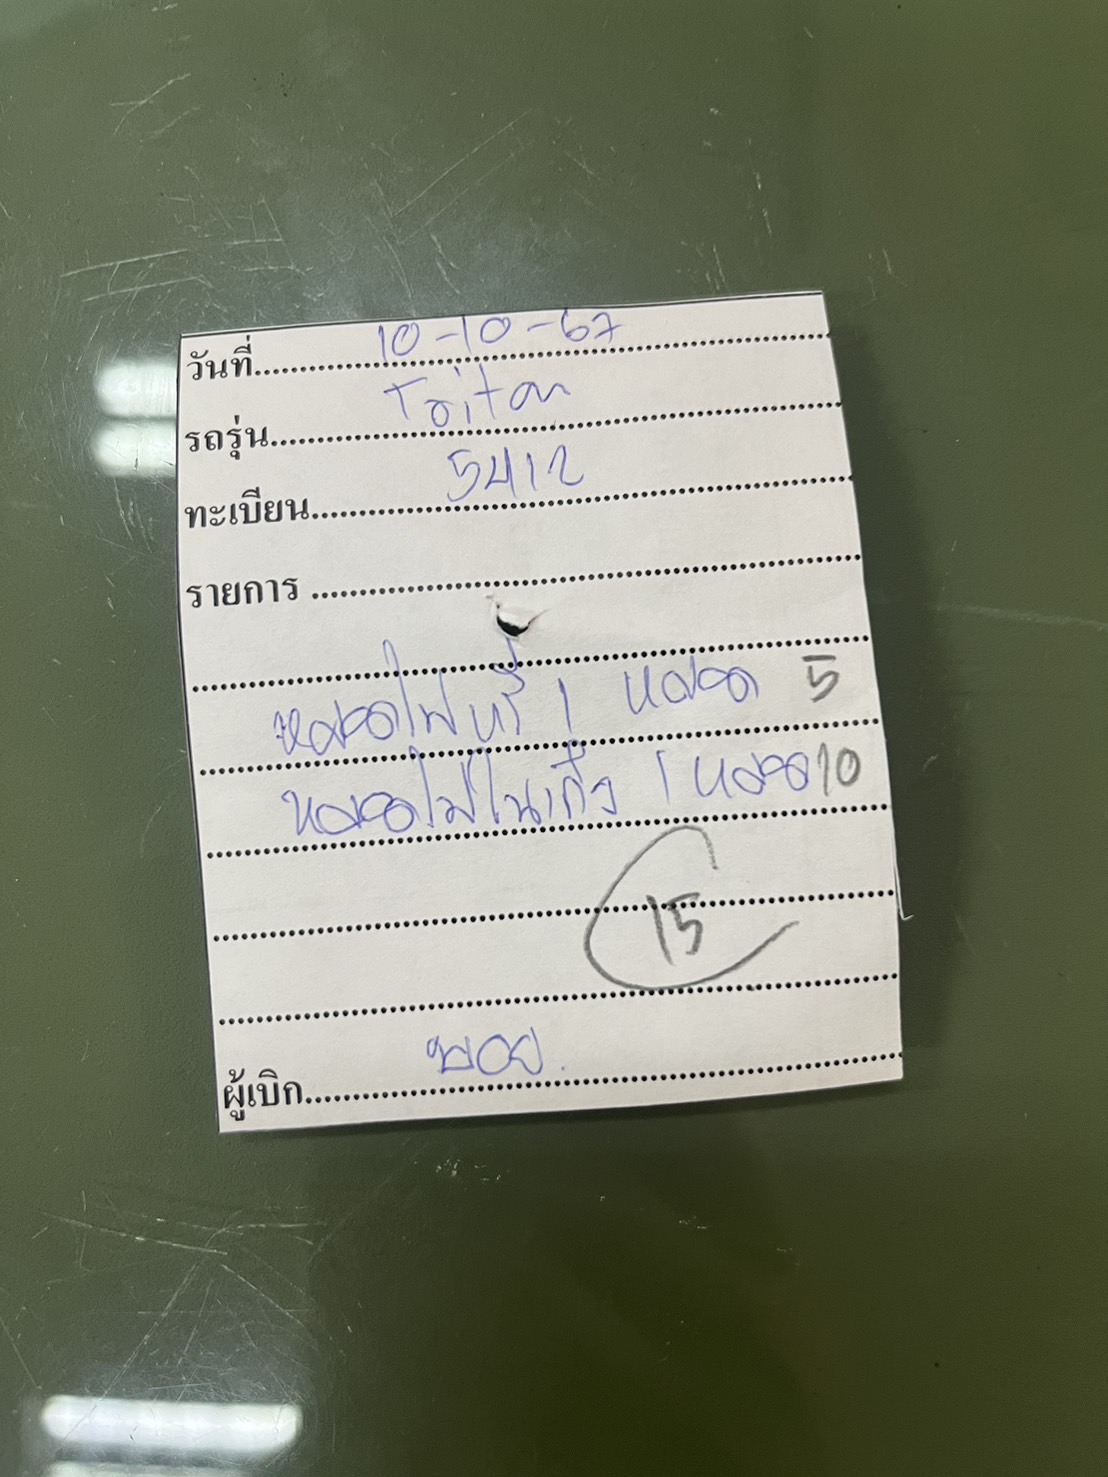 วันที่ 10-10-67
รถรุ่น Triton
ทะเบียน 5412
รายการ
หลอดไฟหรี่ 1 หลอด 5
หลอดไฟในเก๋ง 1 หลอด 10
15
ผู้เบิก ซอย.